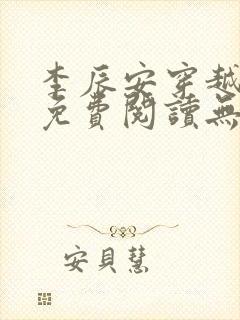 李辰安穿越
免費閱讀無
安貝慧